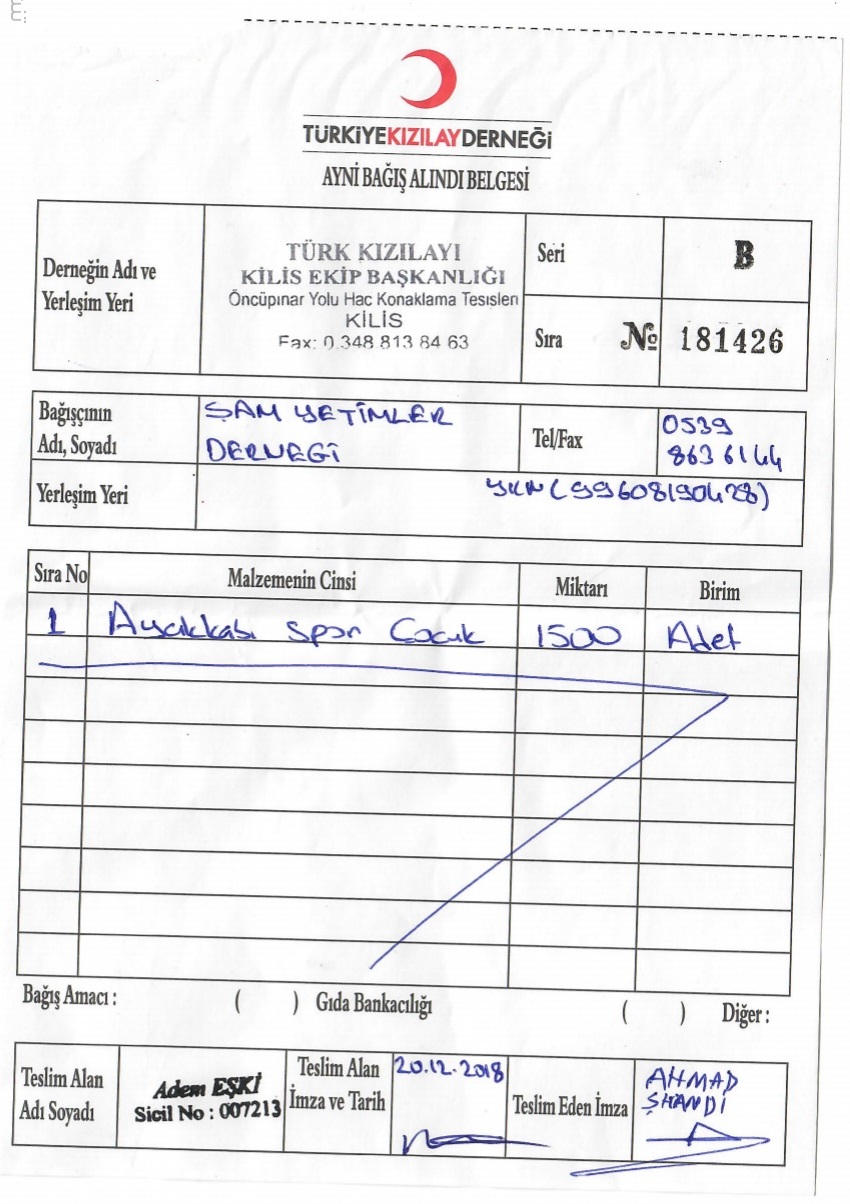 TÜRKİYEKIZILAYDERNEĞİ
AYNİ BAĞIŞ ALINDI BELGESİ
Derneğin Adı ve
Yerleşim Yeri
TÜRK KIZILAYI
KİLİS EKİP BAŞKANLIĞI
Öncüpınar Yolu Hac Konaklama Tesisleri
KİLİS
Fax: 0 348 813 84 63
Seri
B
Sıra
№ 181426
Bağışçının
Adı, Soyadı
ŞAM YETİMLER
DERNEGİ
Tel/Fax
0539
863 6144
Yerleşim Yeri
YKN (99608190428)
Sıra No Malzemenin Cinsi Miktarı Birim
1 Ayakkabı Spor Çocuk 1500 Adet
Bağış Amacı : ( ) Gıda Bankacılığı ( ) Diğer :
Teslim Alan
Adı Soyadı
Adem EŞKİ
Sicil No : 007213
Teslim Alan
İmza ve Tarih
20.12.2018
Teslim Eden İmza
AHMAD
ŞHANDİ